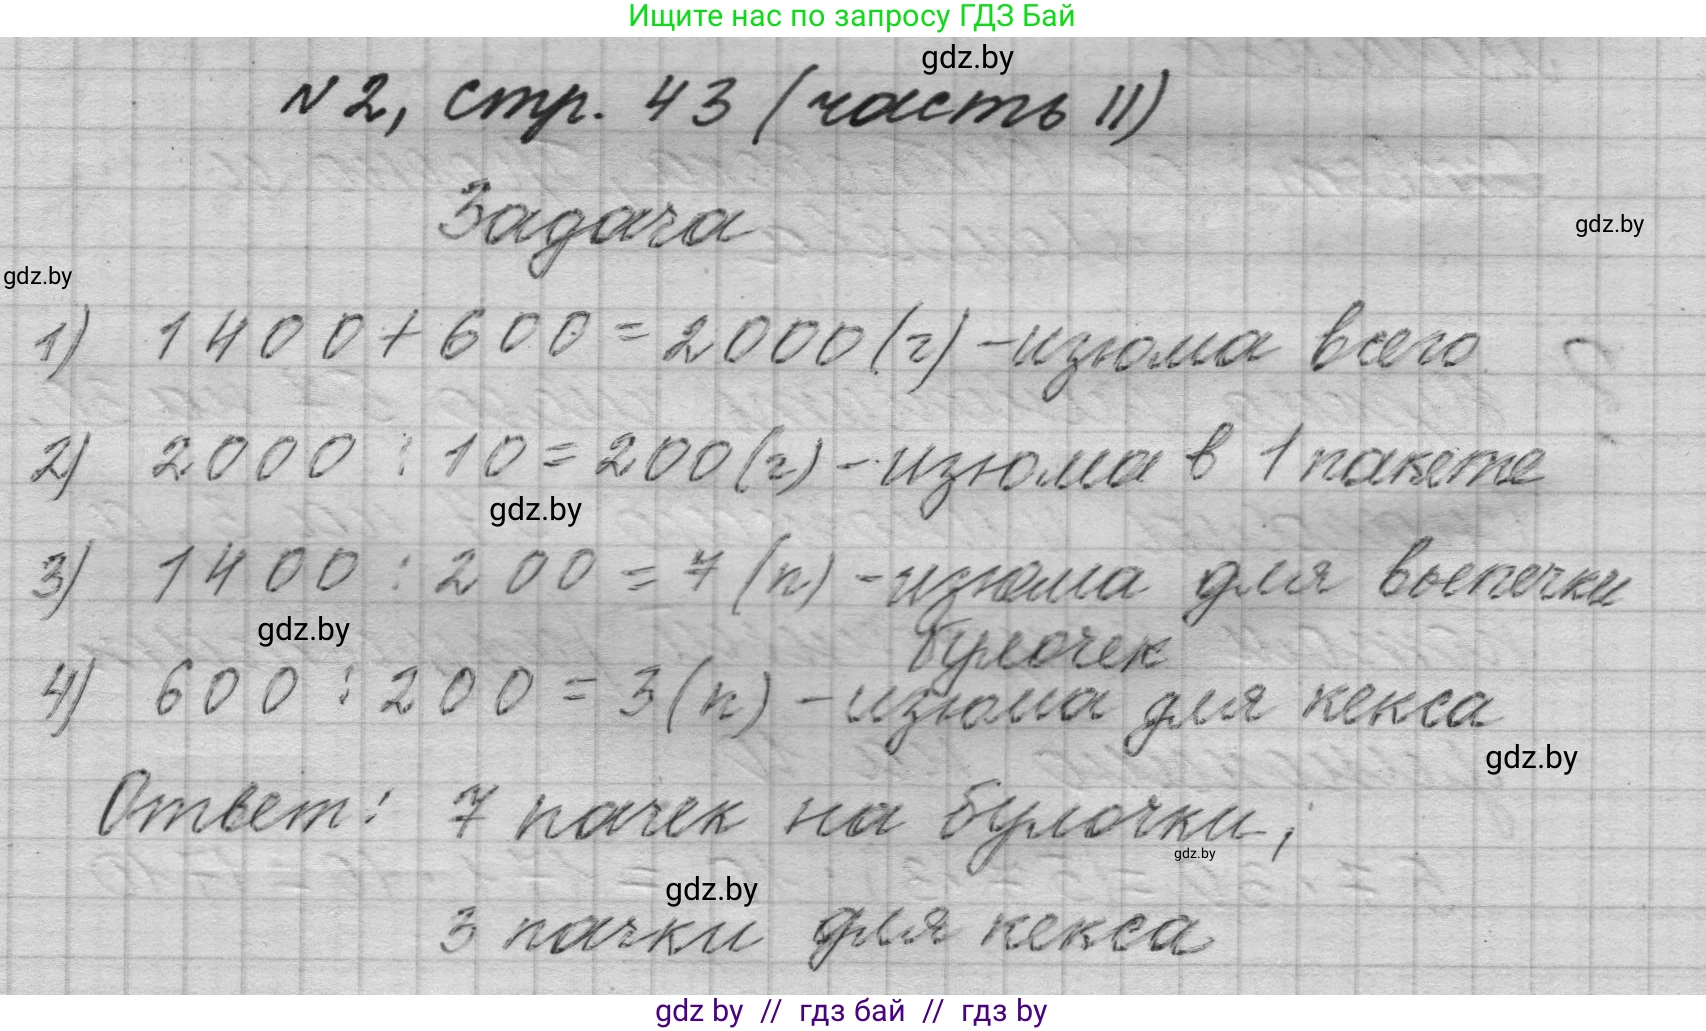 Ищите нас по запросу ГДЗ Бай
gdz.by
N2, стр. 43 (часть II)
Задача
gdz.by
gdz.by
1) 1400+600=2000(г)-изюма всего
2) 2000 : 10=200(г)-изюма в 1 пакете
gdz.by
3) 1400 : 200=7(п)-изюма для выпечки
булочек
gdz.by
4) 600 : 200=3(п)-изюма для кекса
gdz.by
Ответ: 7 пачек на булочки;
gdz.by
gdz.by
3 пачки для кекса
gdz by // гдз бай // гдз by